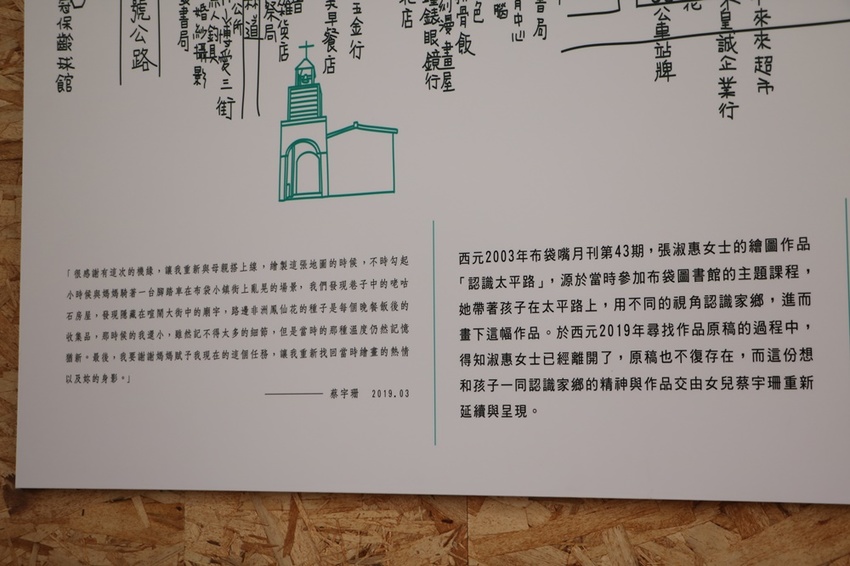 號公路
保齡球館
書局
婚紗攝影
釣具
博愛三街
公所
林道
雜貨店
早餐店
玉金行
花店
鐘錶眼鏡行
漫畫屋
排骨飯
色
電腦
中心
書局
公車站牌
花
皇誠企業行
來來超市
「很感謝有這次的機緣，讓我重新與母親搭上線，繪製這張地圖的時候，不時勾起
小時候與媽媽騎著一台腳踏車在布袋小鎮街上亂晃的場景，我們發現巷子中的咾咕
石房屋，發現隱藏在喧鬧大街中的廟宇，路邊非洲鳳仙花的種子是每個晚餐飯後的
收集品，那時候的我還小，雖然記不得太多的細節，但是當時的那種溫度仍然記憶
猶新。最後，我要謝謝媽媽賦予我現在的這個任務，讓我重新找回當時繪畫的熱情
以及妳的身影。」
蔡宇珊 2019.03
西元2003年布袋嘴月刊第43期，張淑惠女士的繪圖作品
「認識太平路」，源於當時參加布袋圖書館的主題課程，
她帶著孩子在太平路上，用不同的視角認識家鄉，進而
畫下這幅作品。於西元2019年尋找作品原稿的過程中，
得知淑惠女士已經離開了，原稿也不復存在，而這份想
和孩子一同認識家鄉的精神與作品交由女兒蔡宇珊重新
延續與呈現。